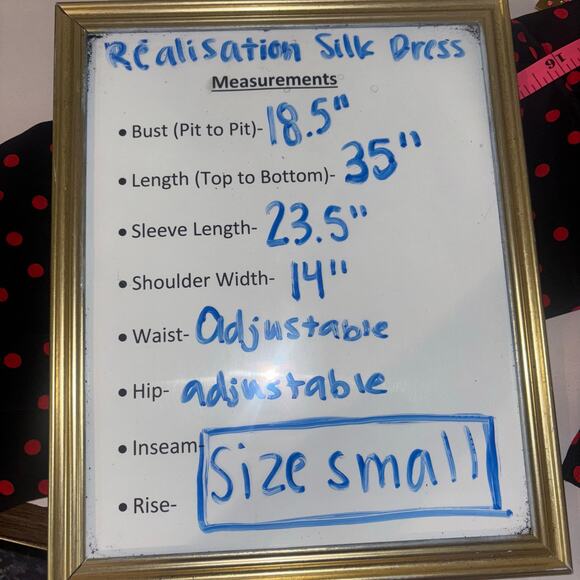 Réalisation Silk Dress
Measurements
• Bust (Pit to Pit)- 18.5"
• Length (Top to Bottom)- 35"
• Sleeve Length- 23.5"
• Shoulder Width- 14"
• Waist- Adjustable
• Hip- adjustable
• Inseam-
Size small
• Rise-
16